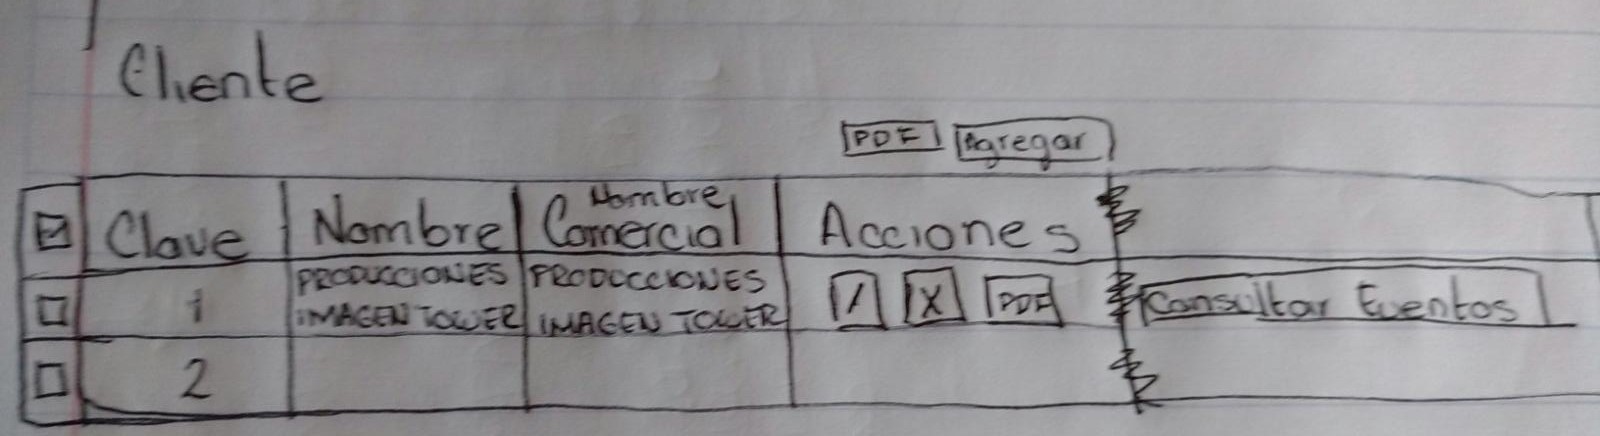 Cliente
PDF Agregar
Clave Nombre Nombre Comercial Acciones
1 PRODUCCIONES IMAGEN TOWER PRODUCCIONES IMAGEN TOWER / X PDF Consultar Eventos
2